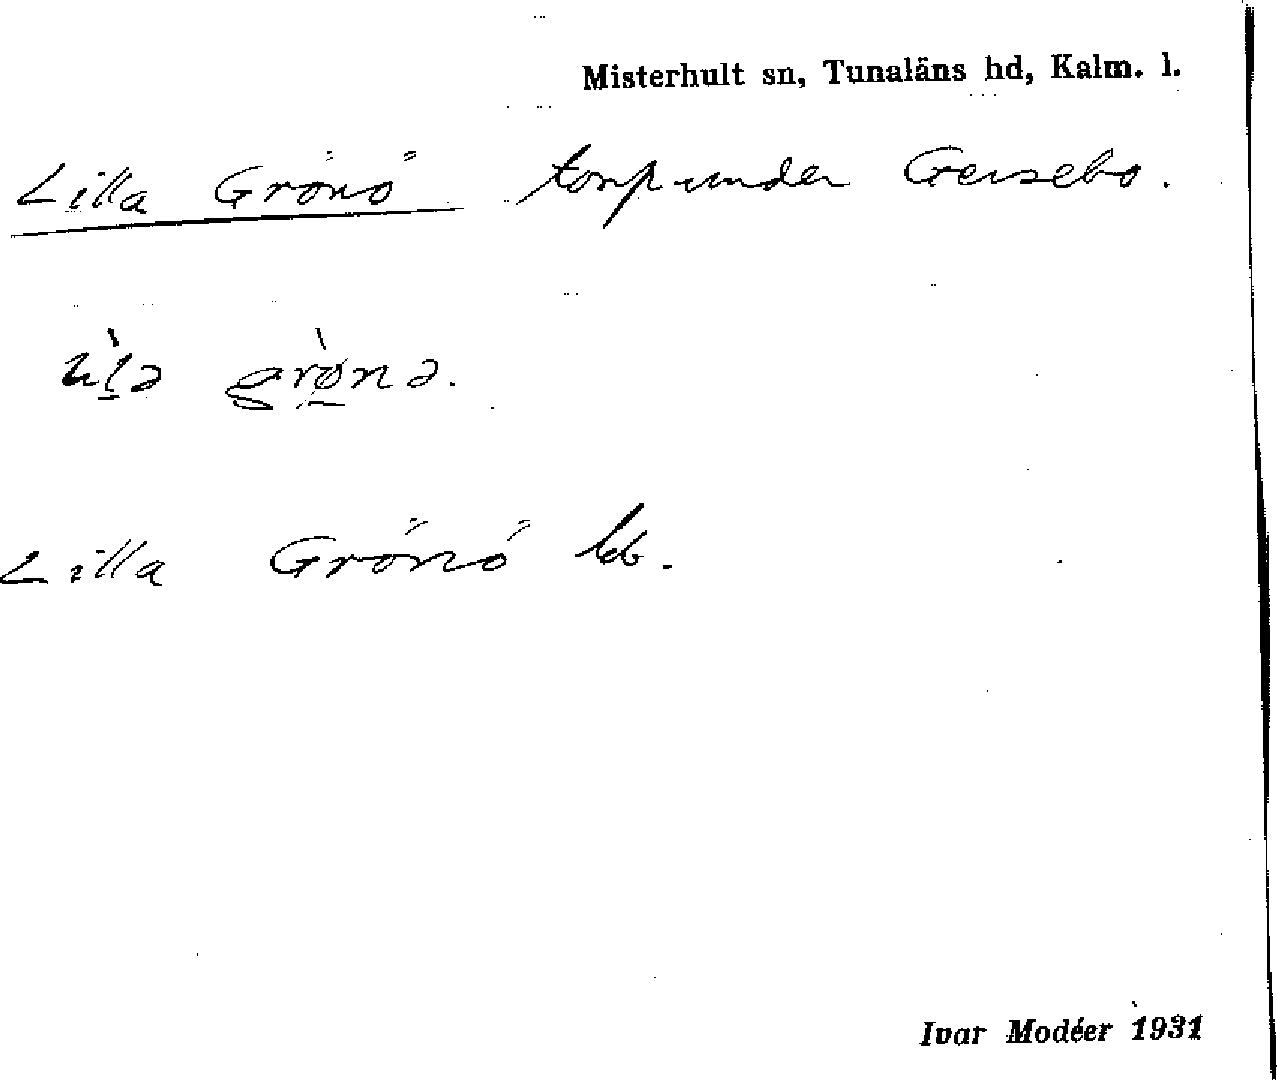 Misterhult sn, Tunaläns hd, Kalm. l.
Lilla Grönö torp under Gersebo.
Lilla Grönö
Ivar Modéer 1931